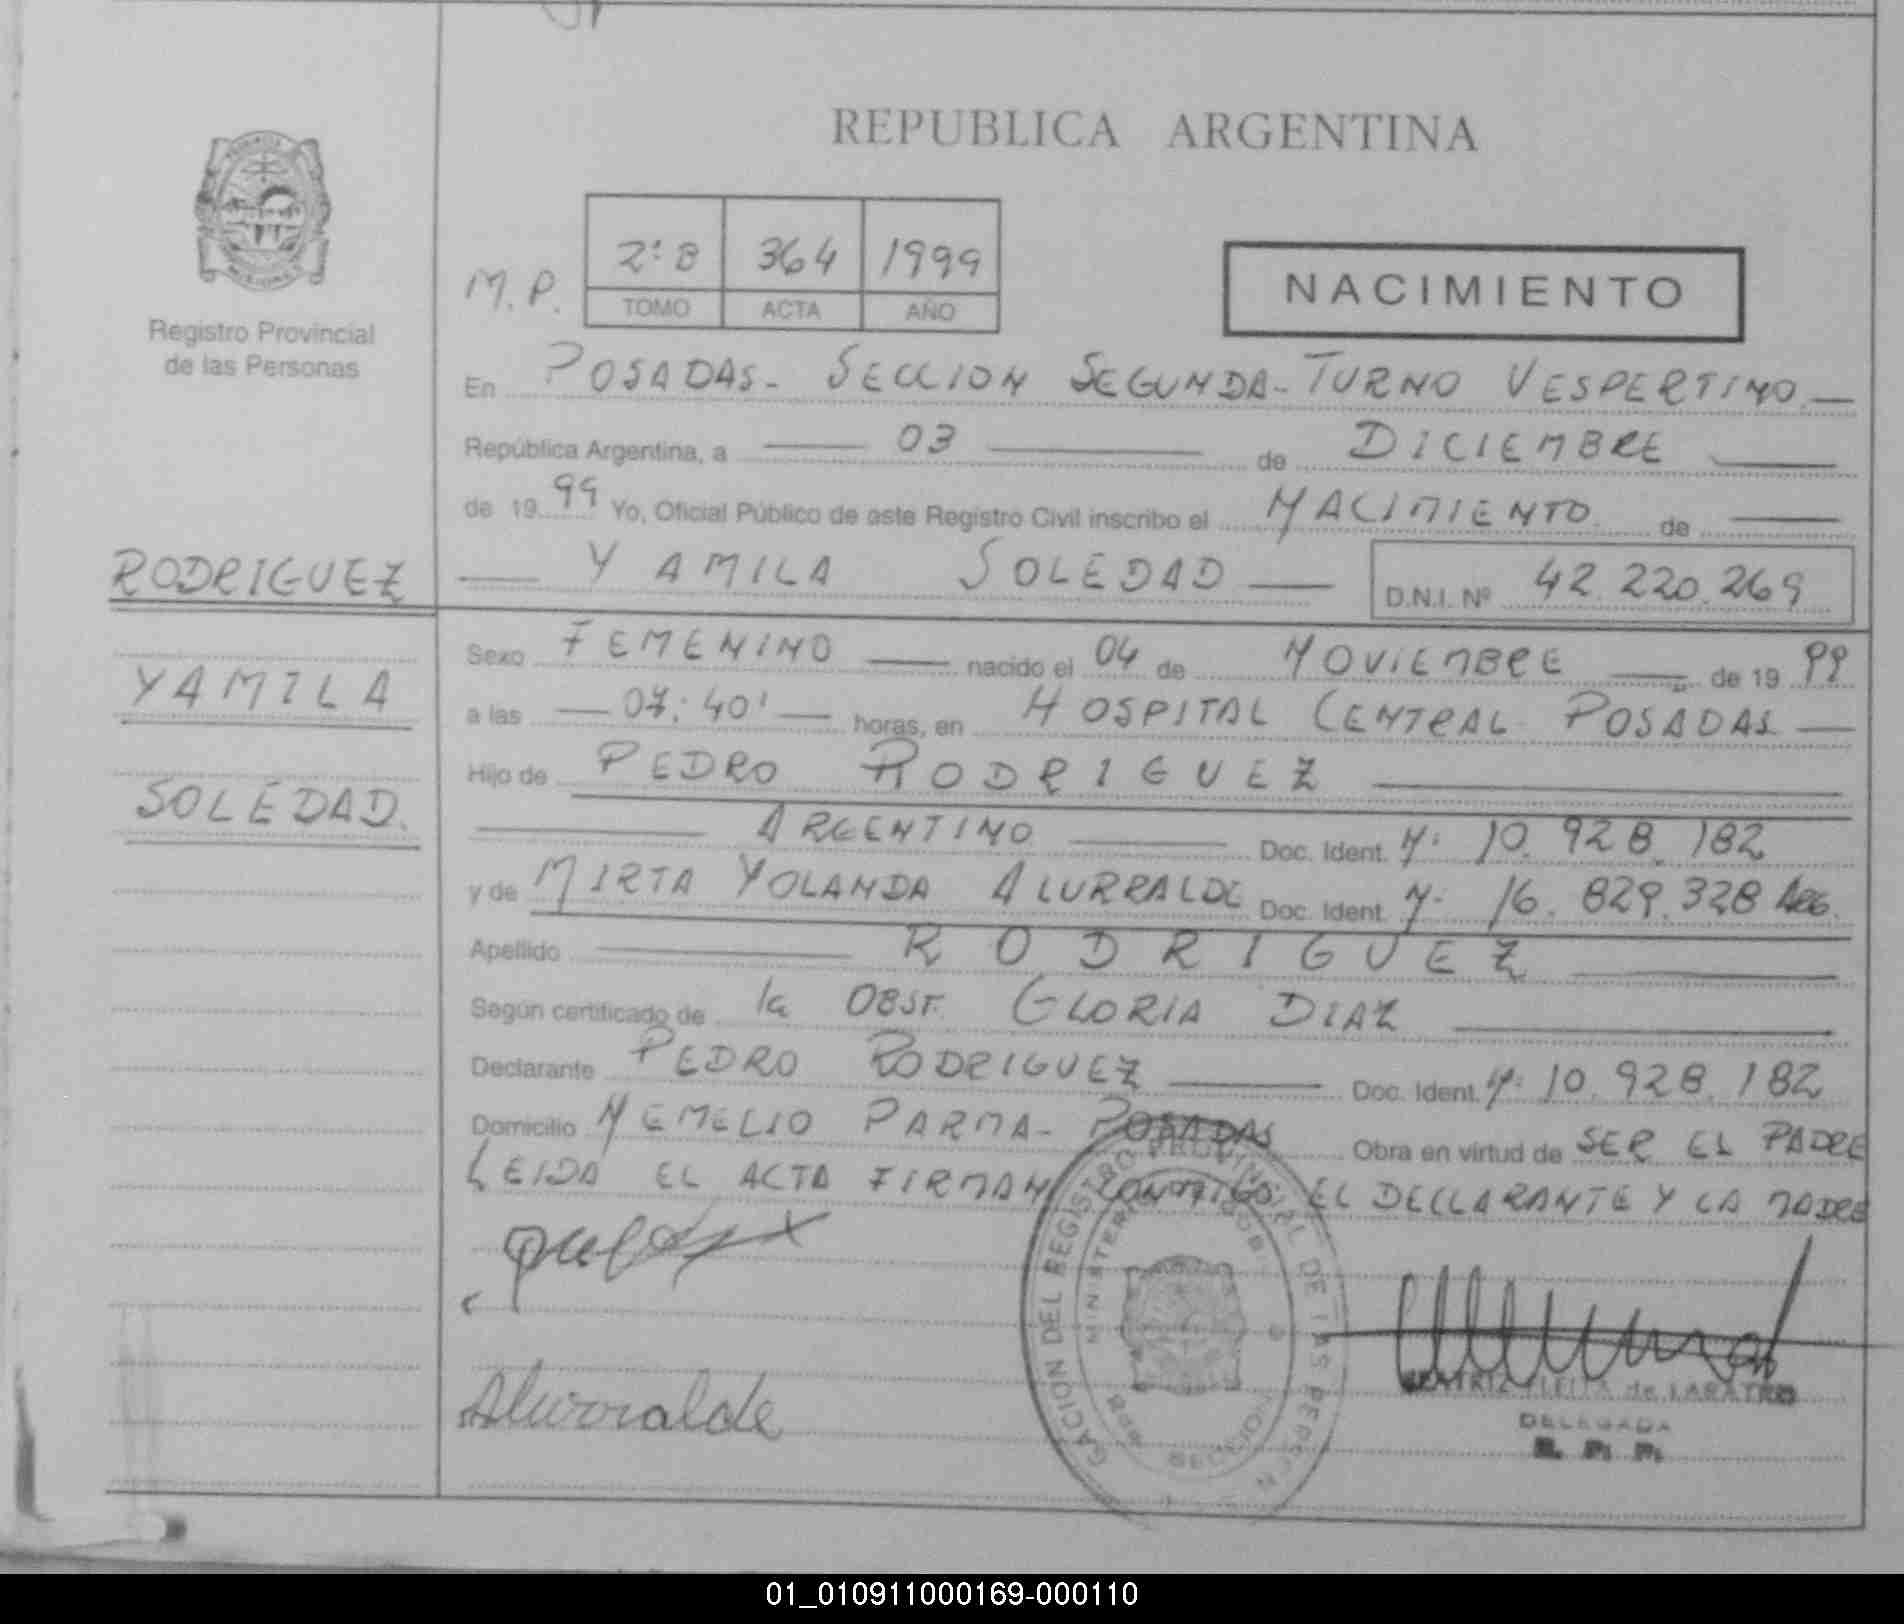 REPUBLICA ARGENTINA
Registro Provincial
de las Personas
M.P.
2º B 364 1999
TOMO ACTA AÑO
NACIMIENTO
En POSADAS - SECCION SEGUNDA - TURNO VESPERTINO
República Argentina, a 03 de DICIEMBRE
de 19 99 Yo, Oficial Público de este Registro Civil inscribo el NACIMIENTO de
YAMILA SOLEDAD D.N.I. Nº 42.220.269
RODRIGUEZ
YAMILA
SOLEDAD.
Sexo FEMENINO nacido el 04 de NOVIEMBRE de 19 99
a las 07:40' horas, en HOSPITAL CENTRAL POSADAS
Hijo de PEDRO RODRIGUEZ
ARGENTINO Doc. Ident. Nº 10.928.182
y de MIRTA YOLANDA ALURRALDE Doc. Ident. Nº 16.829.328 ARG.
Apellido RODRIGUEZ
Según certificado de la OBST. GLORIA DIAZ
Declarante PEDRO RODRIGUEZ Doc. Ident. Nº 10.928.182
Domicilio NEMESIO PARMA - POSADAS Obra en virtud de SER EL PADRE
LEIDA EL ACTA FIRMAN CONMIGO: EL DECLARANTE Y LA MADRE
Alurralde
DELEGADA
01_010911000169-000110